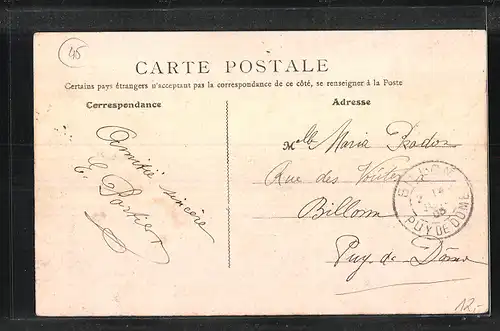 45
CARTE POSTALE
Certains pays étrangers n'acceptant pas la correspondance de ce côté, se renseigner à la Poste
Correspondance
Amitié sincère
E. Portier
Adresse
Mlle Maria Pradon
Rue des
Billom
Puy-de-Dôme
BILLOM
PUY DE DOME
12,-